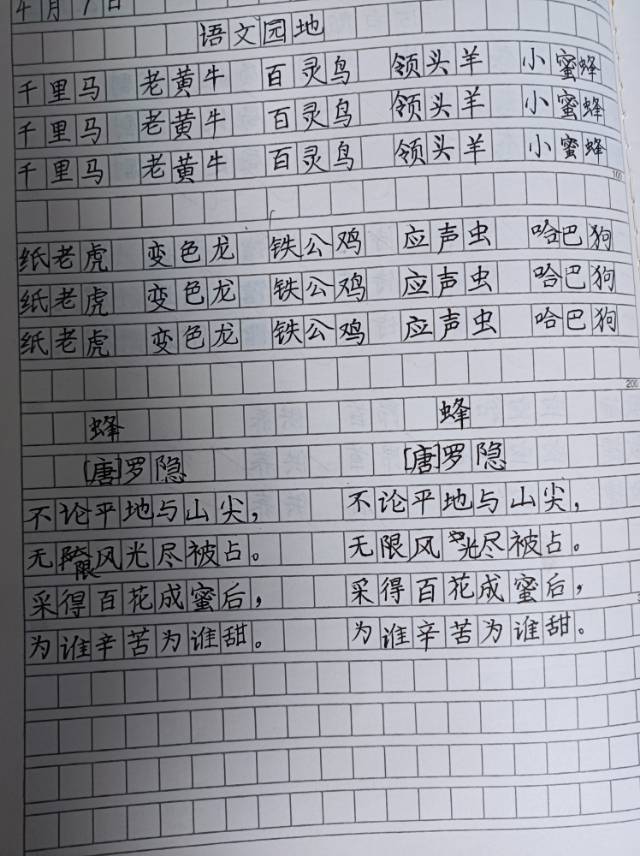 4月7日
语文园地
千里马 老黄牛 百灵鸟 领头羊 小蜜蜂
千里马 老黄牛 百灵鸟 领头羊 小蜜蜂
千里马 老黄牛 百灵鸟 领头羊 小蜜蜂
纸老虎 变色龙 铁公鸡 应声虫 哈巴狗
纸老虎 变色龙 铁公鸡 应声虫 哈巴狗
纸老虎 变色龙 铁公鸡 应声虫 哈巴狗
200
蜂 蜂
[唐]罗隐 [唐]罗隐
不论平地与山尖， 不论平地与山尖，
无限风光尽被占。 无限风光尽被占。
采得百花成蜜后， 采得百花成蜜后，
为谁辛苦为谁甜。 为谁辛苦为谁甜。